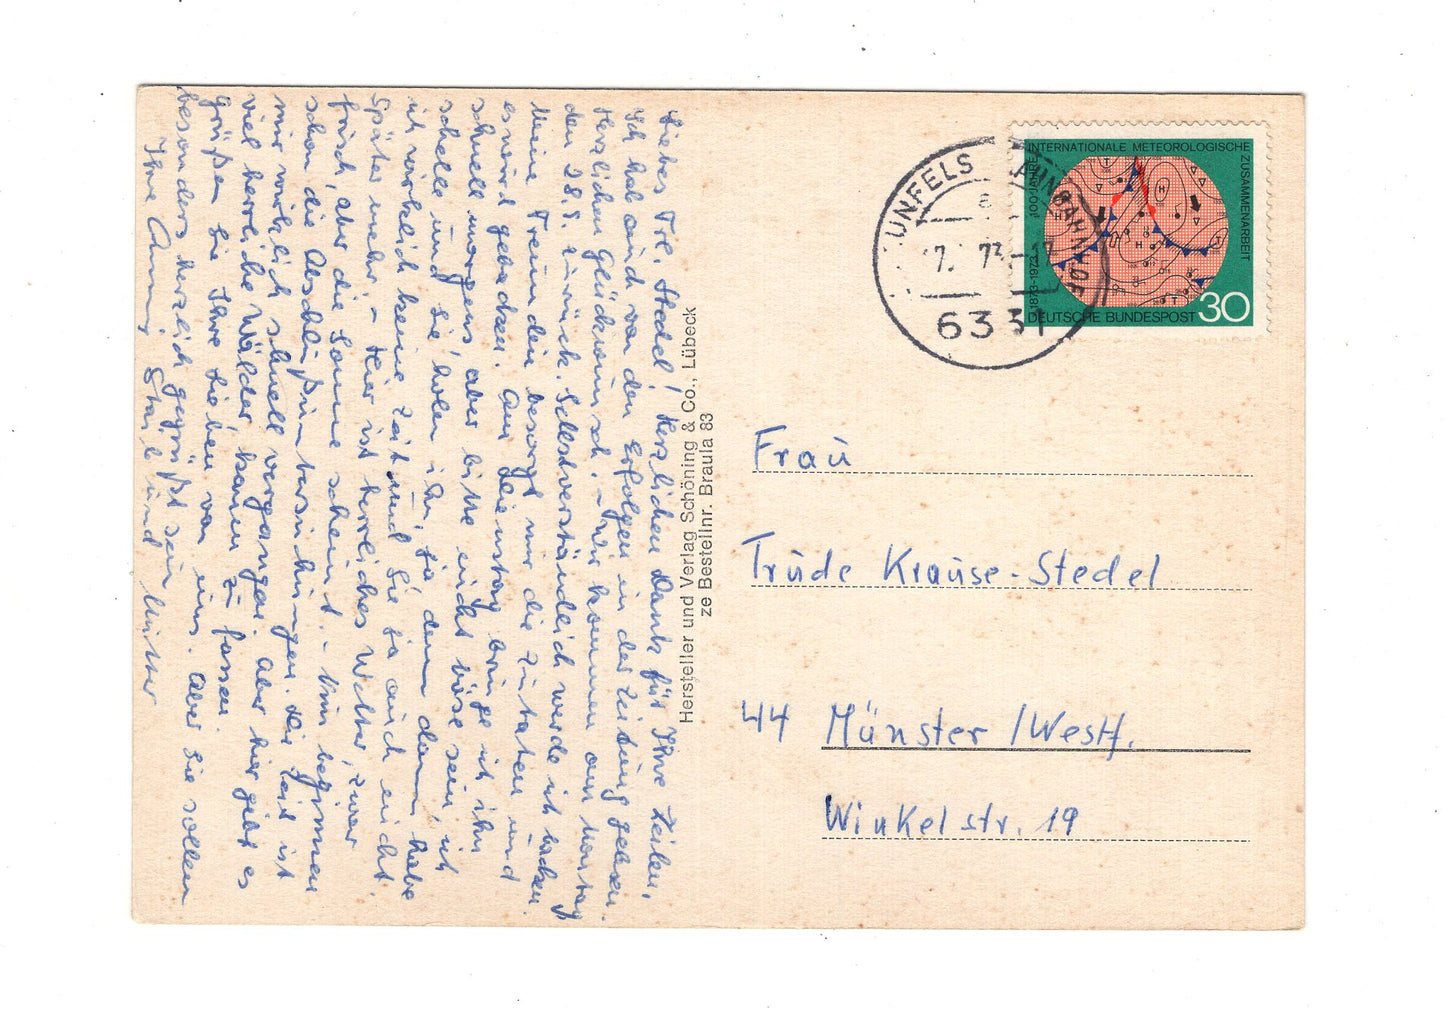 Liebes Frl. Stedel! Herzlichen Dank für Ihre Zeilen.
Ich hab auch von den Erfolgen in der Zeitung gelesen.
Herzlichen Glückwunsch. – Wir kommen am Montag
den 28.5. zurück. Selbstverständlich werde ich kochen.
Meine Freundin besorgt mir die Zutaten und
es wird gebacken. Am Dienstag bringe ich ihn
schnell morgens aber bitte nicht böse sein, ich
schelle und Sie holen ihn, ja denn dann habe
ich wirklich keine Zeit und Sie ja auch nicht.
Später mehr. – Hier ist herrliches Wetter, zwar
frisch, aber die Sonne scheint. – Nun beginnen
schon die Abschlußuntersuchungen. Die Zeit ist
mir wirklich schnell vergangen. Aber hier gibt es
viel herrliche Wälder kaum zu fassen.
Grüßen Sie Ihre Lieben von uns. Aber Sie sollen
besonders herzlich gegrüßt sein
Ihre Anny und Mutter
Hersteller und Verlag Schöning & Co., Lübeck
ze Bestellnr. Braula 83
UNFELS
7. 73 – 17
6331
100 JAHRE INTERNATIONALE METEOROLOGISCHE ZUSAMMENARBEIT
1873–1973
DEUTSCHE BUNDESPOST 30
Frau
Trude Krause-Stedel
44 Münster /Westf.
Winkelstr. 19